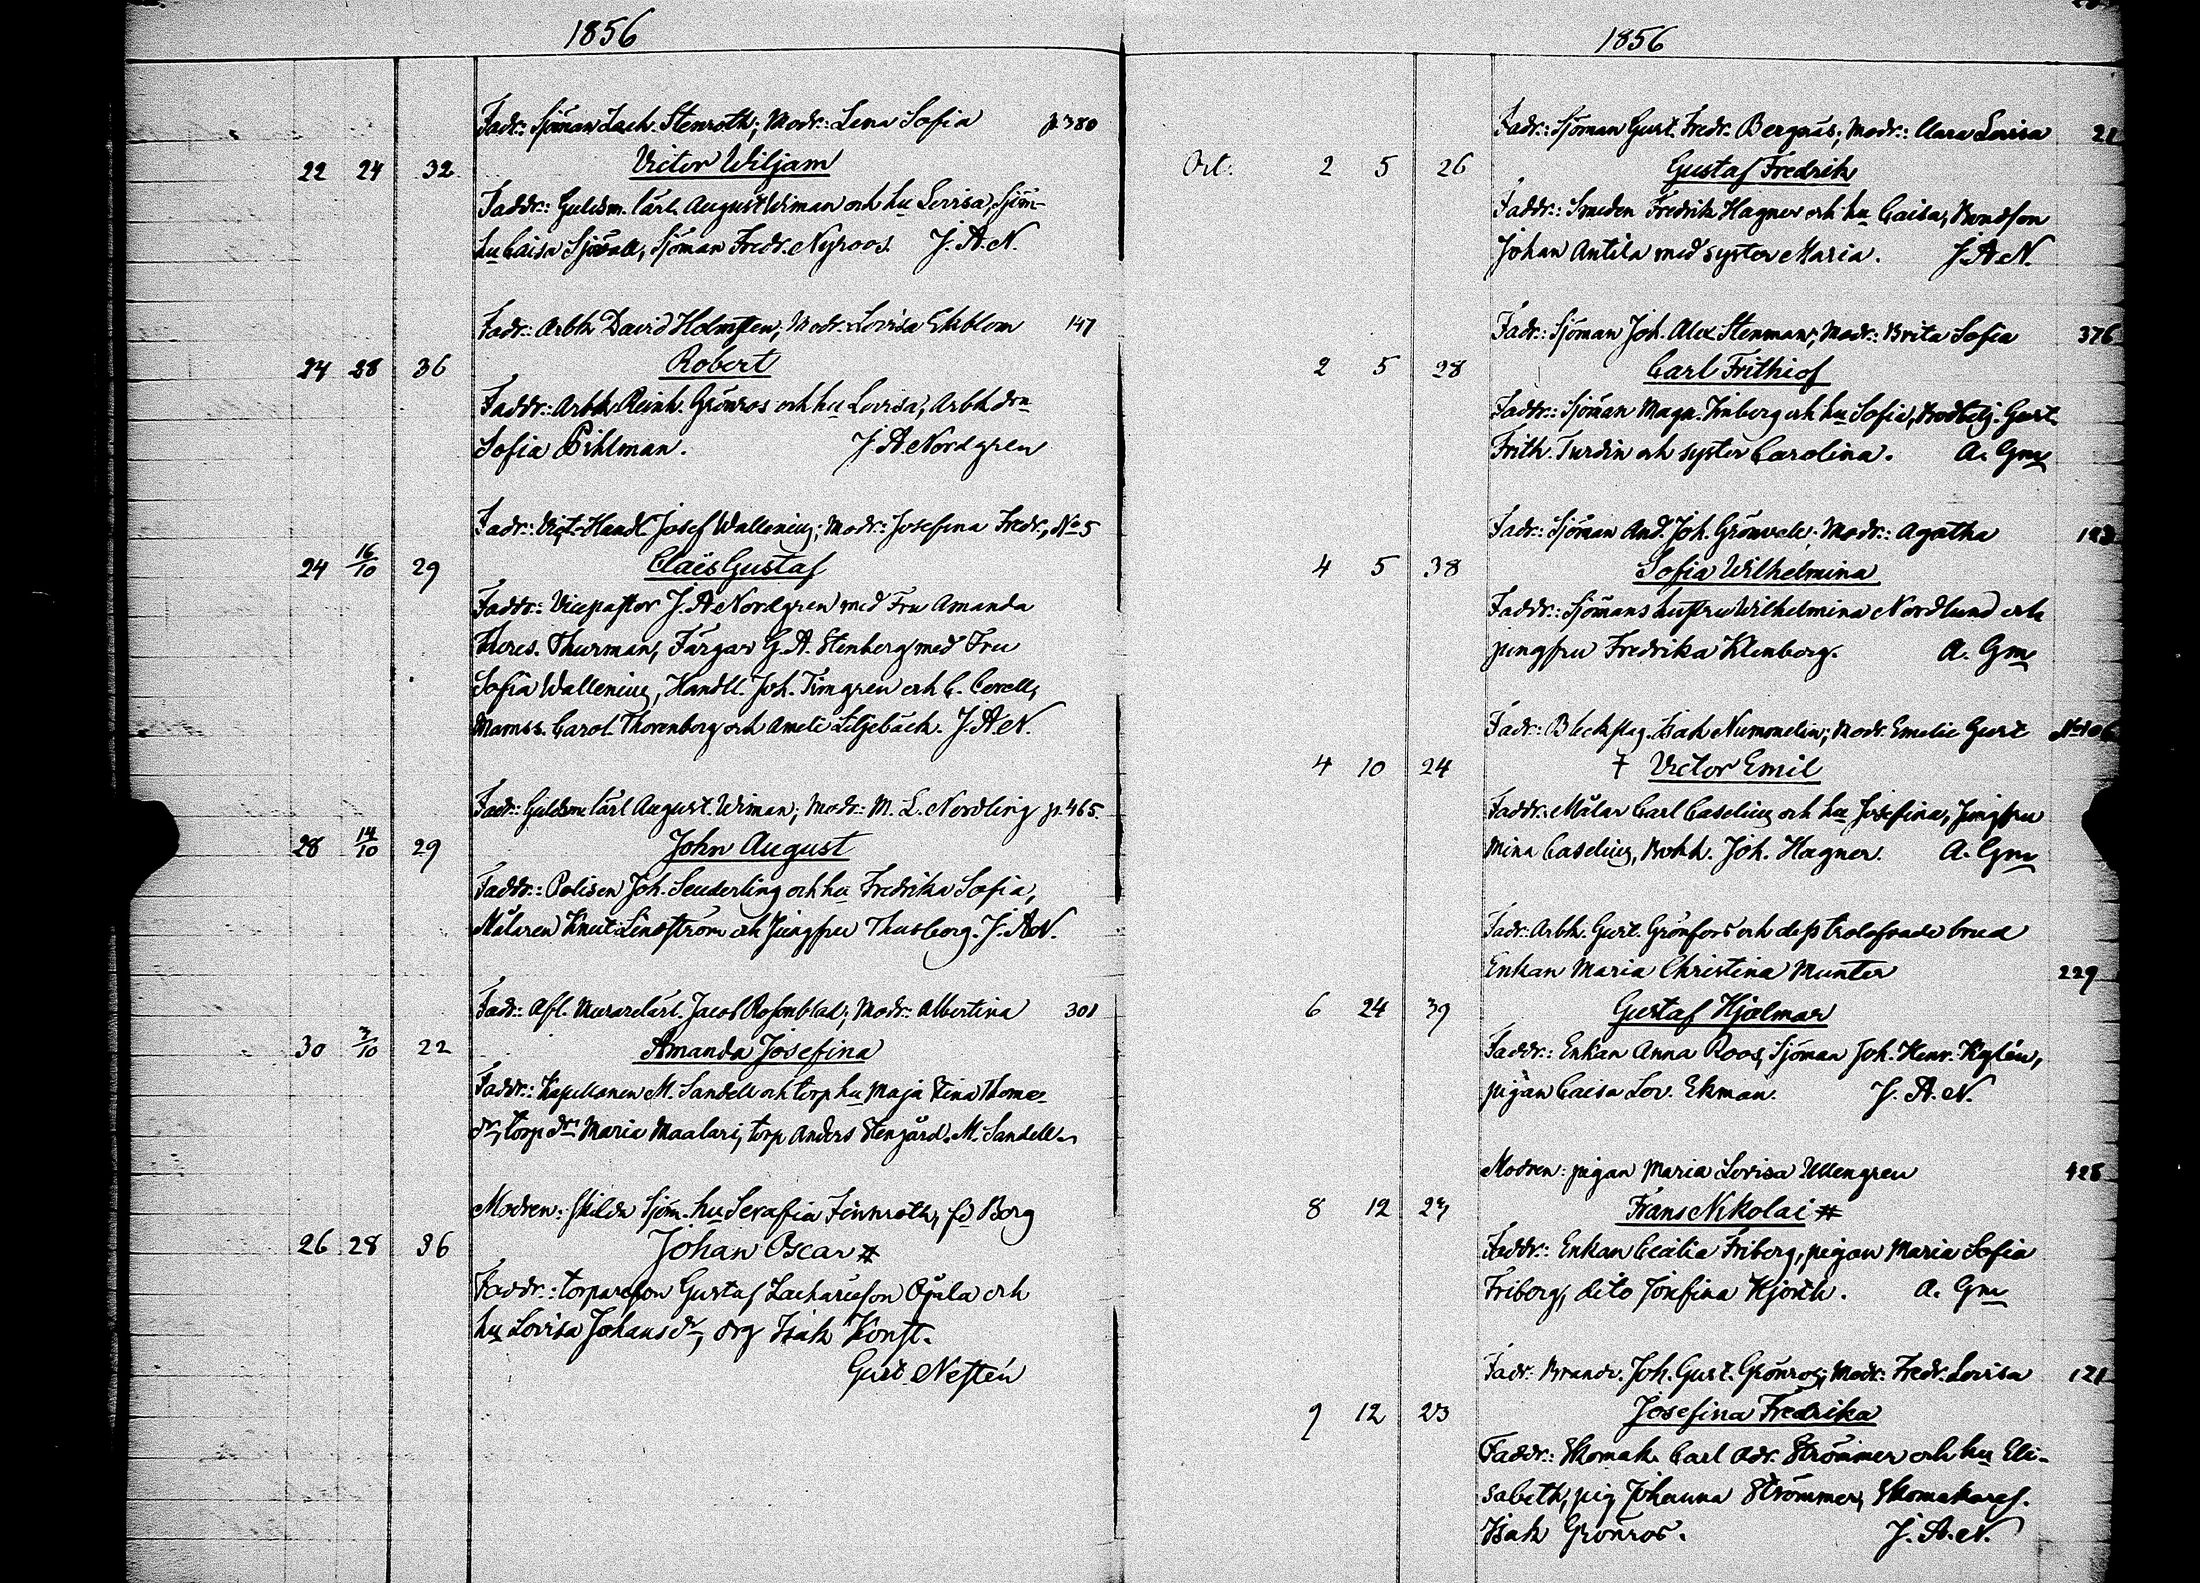 1856
Fadr: Sjöman Zach. Stenroth; Modr: Lena Sofia p 380
22 24 32 Victor Wiljam
Faddr: Guldsm. lärl. August Wiman och hu Lovisa, Sjöm-
hu Caisa Sjövall, Sjöman Fredr. Nyroos. J. A. N.
Fadr: Arbk David Holmsten; Modr: Lovisa Ekblom 147
24 28 36 Robert
Faddr: Arbk Reinh. Grönros och hu Lovisa, Arbk drn
Sofia Pihlman. J. A Nordgren
Fadr: Handl. Josef Wallenius; Modr: Josefina Fredr., No 5
24 16/10 29 Claës Gustaf
Faddr: Vicepastor J. A Nordgren med Fru Amanda
Theres. Thurman, Färgar G. A. Stenberg med Fru
Sofia Wallenius, Handl. Joh. Timgren och C. Corell,
Mamss. Carol. Thorenborg och Amelie Liljebäck. J. A. N.
Fadr: Guldsm. lärl August Wiman; Modr: M. L. Nordling p. 465.
28 14/10 29 John August
Faddr: Polisen Joh. Seuderling och hu Fredrika Sofia,
Målaren Knut Lindström och Jungfru Thusberg. J. A. N.
Fadr: Afl. Murarelärl. Jacob Rosenblad; Modr: Albertina 301
30 3/10 22 Amanda Josefina
Faddr: Kapellanen M. Sandell och torp hu Maja Stina Thome-
dr, torp dr Maria Maalari, torp Anders Stengård. M. Sandell
Modren: skilda Sjöm. hu Serafia Finnroth, fd Borg
26 28 36 Johan Oscar #
Faddr: torpareson Gustaf Zachariæson Ojala och
hu Lovisa Johansdr, drg Isak Konst.
Gust. Nestén
1856
Fadr: Sjöman Gust. Fredr. Bergnäs; Modr: Clara Lovisa 21
Oct. 2 5 26 Gustaf Fredrik
Faddr: Smeden Fredrik Hagner och hu Caisa, Bondson
Johan Antila med syster Maria. J. A. N.
Fadr: Sjöman Joh. Alex Stenman; Modr: Brita Sofia 376
2 5 28 Carl Frithiof
Faddr: Sjöman Magn. Finberg och hu Sofia, Gust.
Frith. Turdin och syster Carolina. A. Gm
Fadr: Sjöman And. Joh. Grönvall; Modr: Agatha
4 5 38 Sofia Wilhelmina
Faddr: Sjömans hustru Wilhelmina Nordlund och
jungfru Fredrika Klenberg. A. Gm
Fadr: Bleckslag. Isak Nummelin; Modr. Emelie Gust No 106
4 10 24 † Victor Emil
Faddr: Målar Carl Caselius och hu Josefina, Jungfru
Mina Caselius, Bokh. Joh. Hagner. A. Gm
Fadr: Arbk. Gust. Grönfors och dess trolofvade brud
Enkan Maria Christina Munter 229
6 24 39 Gustaf Hjalmar
Faddr: Enkan Anna Roos, Sjöman Joh. Henr. Kylén,
pigan Caisa Lov. Ekman. J. A. N.
Modren: pigan Maria Lovisa Ullengren 428
8 12 27 Frans Nikolai #
Faddr: Enkan Cecilia Friberg, pigan Maria Sofia
Friberg, dito Josefina Hjorth. A. Gm
Fadr: Brandv. Joh. Gust. Grönros; Modr: Fredr. Lovisa 121
9 12 23 Josefina Fredrika
Faddr: Skomak. Carl Adr. Strömmer och hu Eli-
sabeth, pig Johanna Strömmer, Skomakaregs.
Isak Grönros. J. A. N.